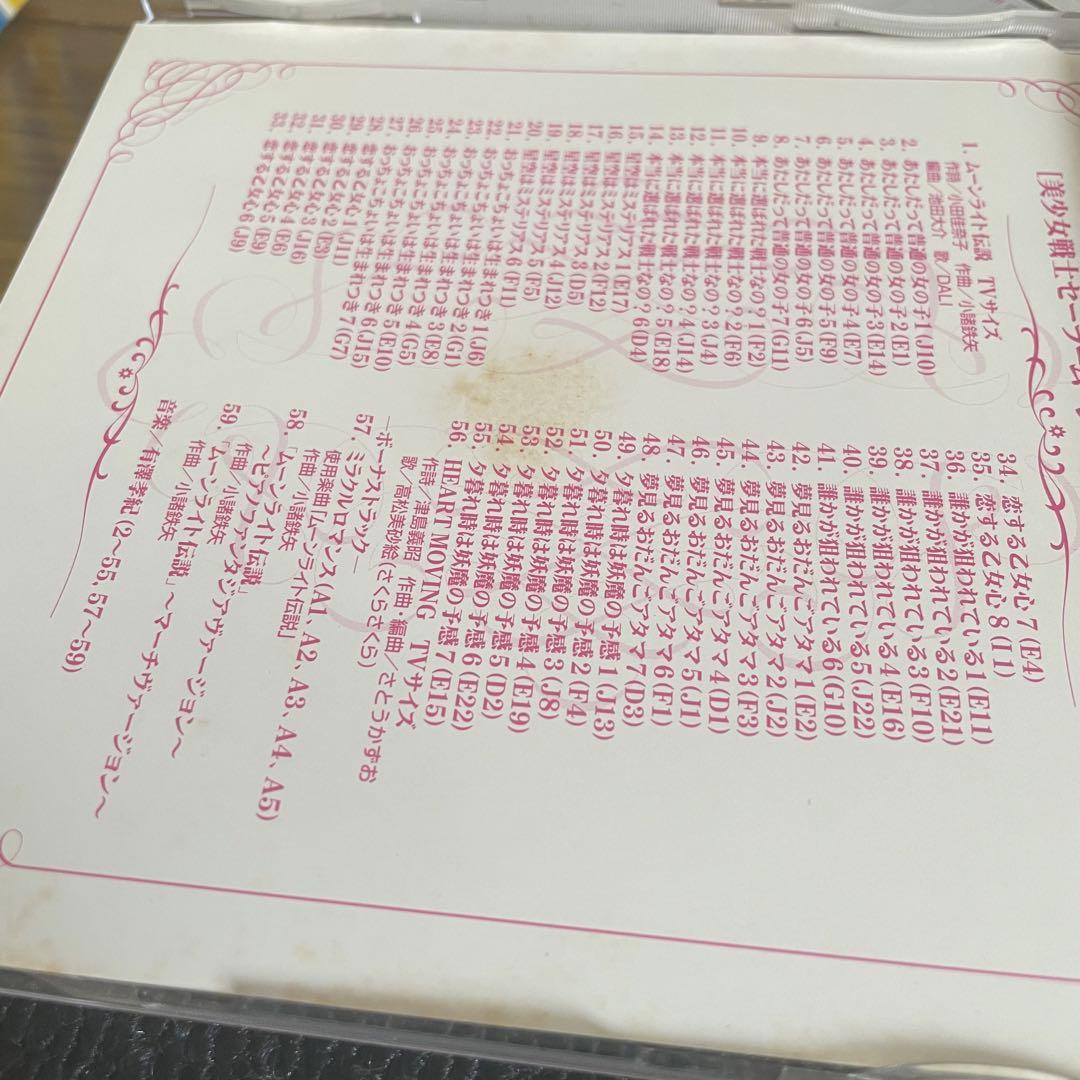 「美少女戦士セーラームーン
1. ムーンライト伝説 TVサイズ
作詩／小田佳奈子 作曲／小諸鉄矢
編曲／池田大介 歌／DALI
2. あたしだって普通の女の子1(J10)
3. あたしだって普通の女の子2(E1)
4. あたしだって普通の女の子3(E14)
5. あたしだって普通の女の子4(E7)
6. あたしだって普通の女の子5(F9)
7. あたしだって普通の女の子6(J5)
8. あたしだって普通の女の子7(G11)
9. 本当に選ばれた戦士なの?1(F2)
10. 本当に選ばれた戦士なの?2(F6)
11. 本当に選ばれた戦士なの?3(J4)
12. 本当に選ばれた戦士なの?4(J14)
13. 本当に選ばれた戦士なの?5(E18)
14. 本当に選ばれた戦士なの?6(D4)
15. 星空はミステリアス1(E17)
16. 星空はミステリアス2(E12)
17. 星空はミステリアス3(D5)
18. 星空はミステリアス4(J12)
19. 星空はミステリアス5(F5)
20. 星空はミステリアス6(F11)
21. おっちょこちょいは生まれつき1(J6)
22. おっちょこちょいは生まれつき2(G1)
23. おっちょこちょいは生まれつき3(E8)
24. おっちょこちょいは生まれつき4(G5)
25. おっちょこちょいは生まれつき5(E10)
26. おっちょこちょいは生まれつき6(J15)
27. おっちょこちょいは生まれつき7(G7)
28. 恋する乙女心1(J11)
29. 恋する乙女心2(E3)
30. 恋する乙女心3(J16)
31. 恋する乙女心4(E6)
32. 恋する乙女心5(E9)
33. 恋する乙女心6(J9)
34. 恋する乙女心7(E4)
35. 恋する乙女心8(I1)
36. 誰かが狙われている1(E11)
37. 誰かが狙われている2(E21)
38. 誰かが狙われている3(F10)
39. 誰かが狙われている4(E16)
40. 誰かが狙われている5(J22)
41. 誰かが狙われている6(G10)
42. 夢見るおだんごアタマ1(E2)
43. 夢見るおだんごアタマ2(J2)
44. 夢見るおだんごアタマ3(F3)
45. 夢見るおだんごアタマ4(D1)
46. 夢見るおだんごアタマ5(J1)
47. 夢見るおだんごアタマ6(F1)
48. 夢見るおだんごアタマ7(D3)
49. 夕暮れ時は妖魔の予感1(J13)
50. 夕暮れ時は妖魔の予感2(F4)
51. 夕暮れ時は妖魔の予感3(J8)
52. 夕暮れ時は妖魔の予感4(E19)
53. 夕暮れ時は妖魔の予感5(D2)
54. 夕暮れ時は妖魔の予感6(E22)
55. 夕暮れ時は妖魔の予感7(E15)
56. HEART MOVING TVサイズ
作詩／津島義昭 作曲・編曲／さとうかずお
歌／高松美砂絵(さくらさくら)
—ボーナストラック—
57. ミラクルロマンス(A1、A2、A3、A4、A5)
使用楽曲「ムーンライト伝説」
作曲／小諸鉄矢
58. 「ムーンライト伝説」
～ピアノファンタジアヴァージョン～
作曲／小諸鉄矢
59. 「ムーンライト伝説」～マーチヴァージョン～
作曲／小諸鉄矢
音楽／有澤孝紀(2～55、57～59)